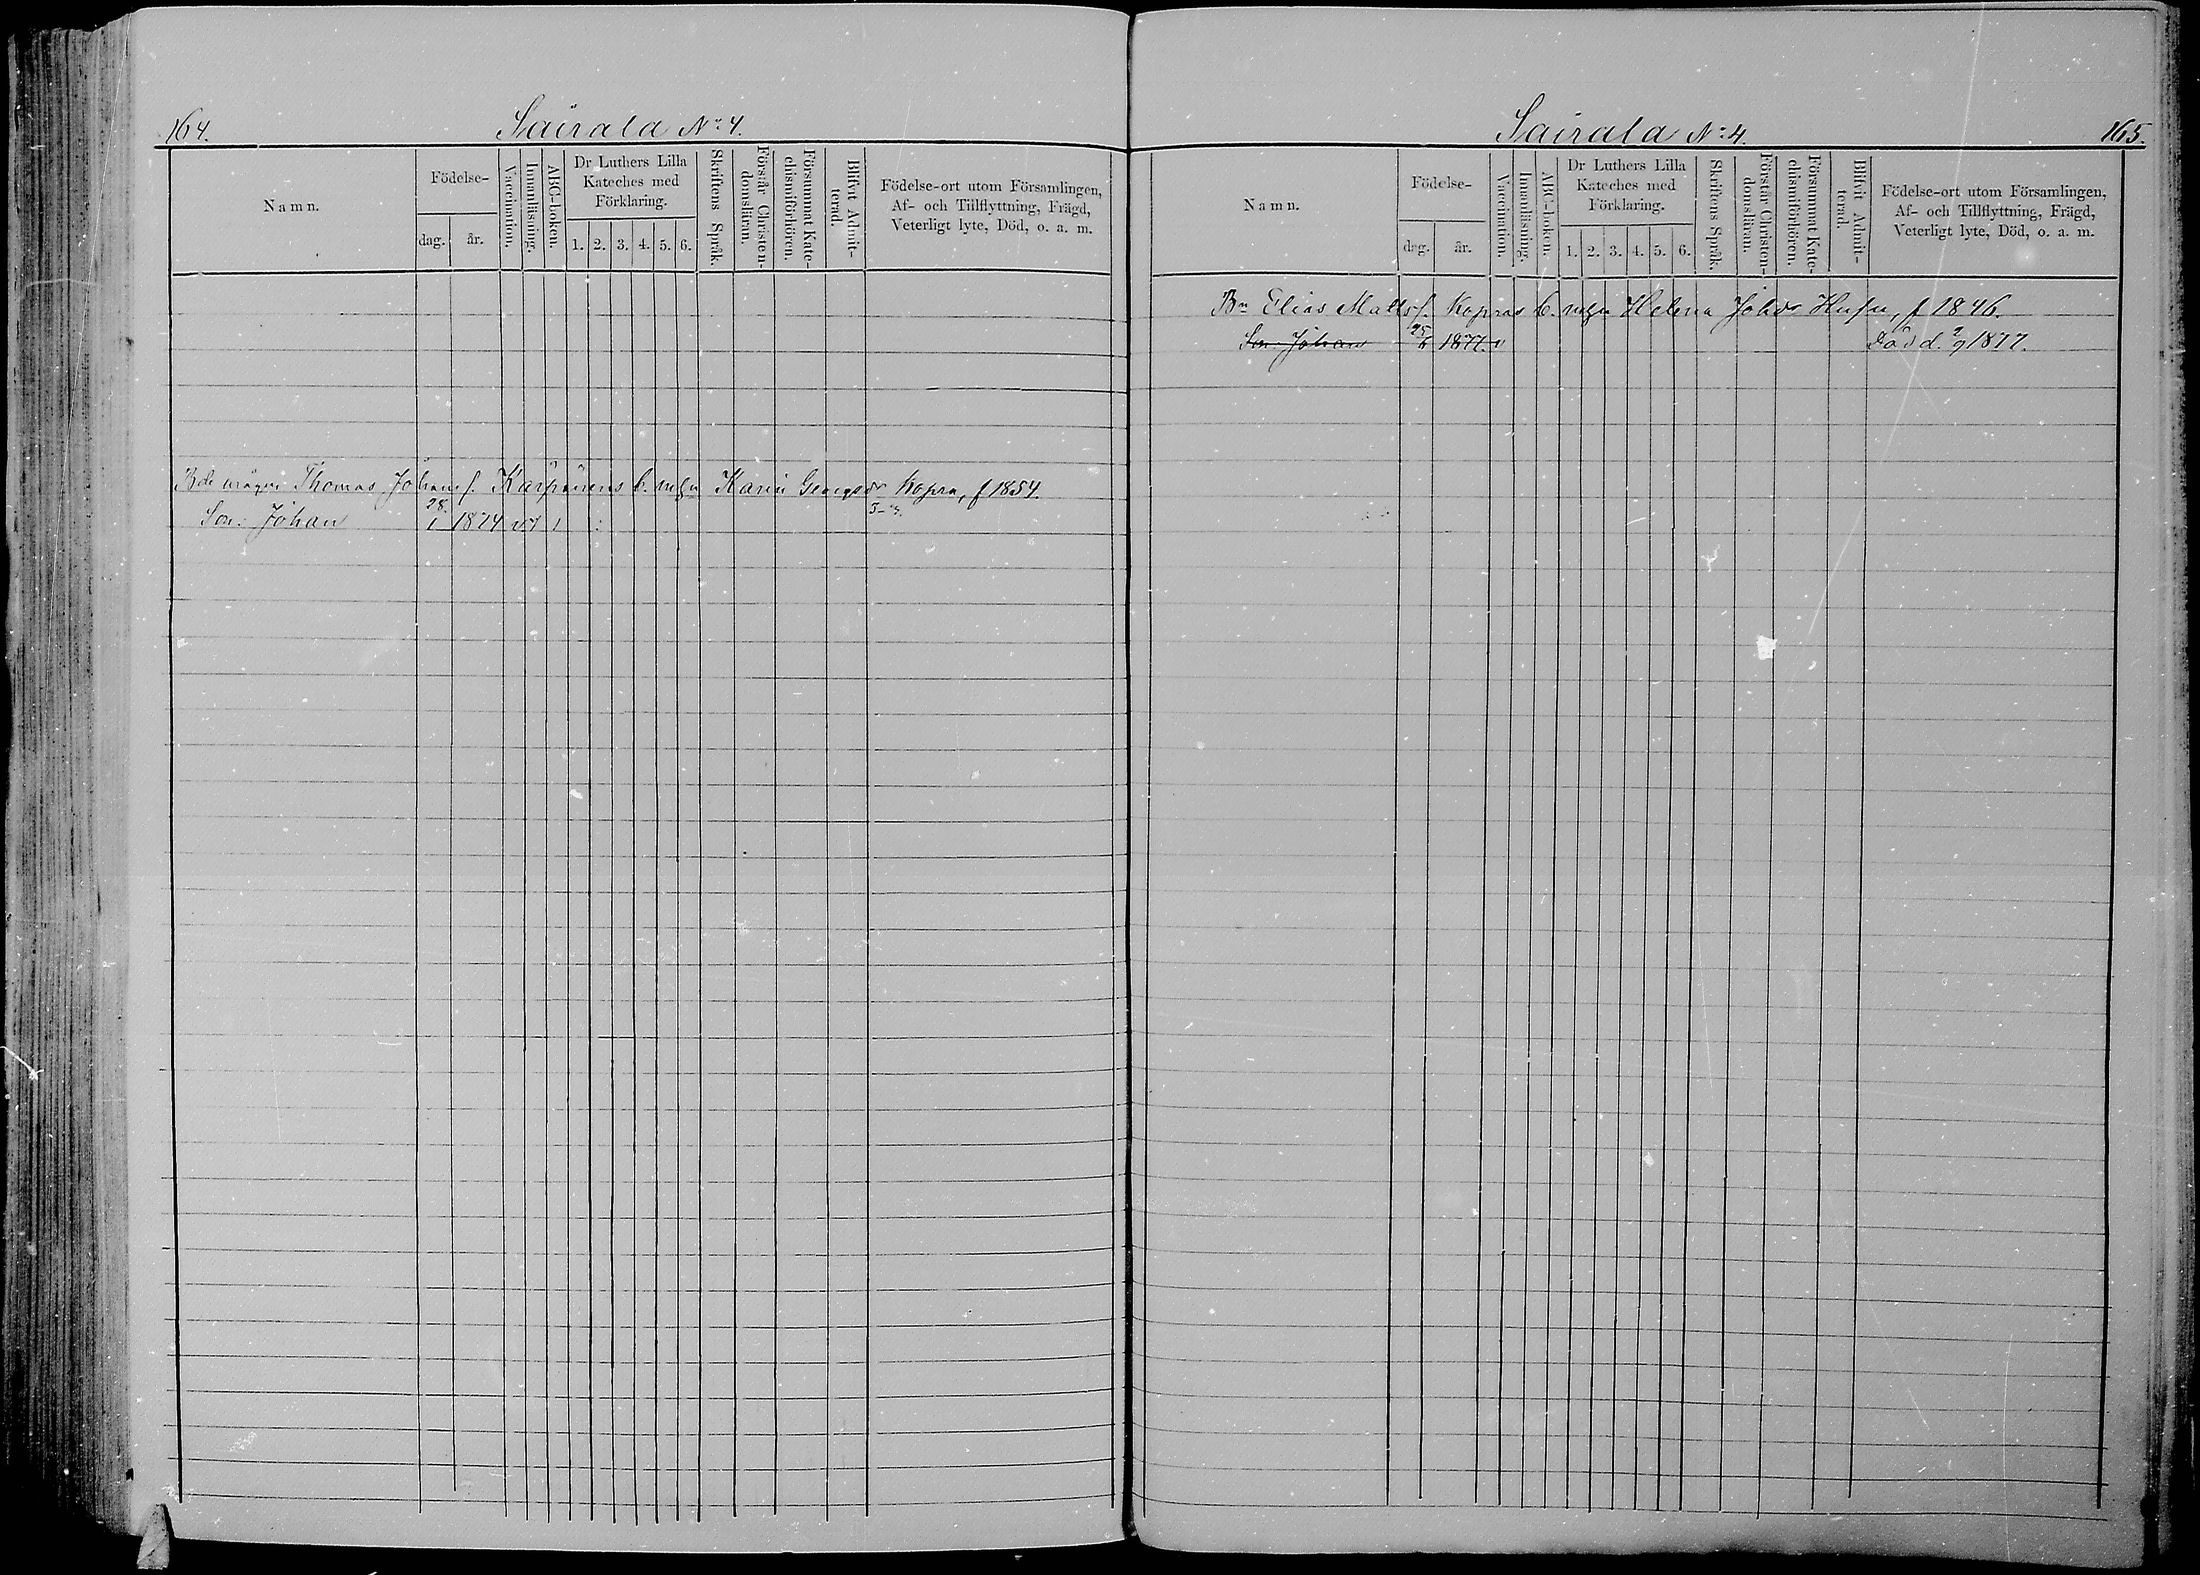 164.
Sairala No 4.
Namn.
Födelse-
dag.
år.
Vaccination.
Innanläsning.
ABC-boken.
Dr Luthers Lilla
Kateches med
Förklaring.
1. 2. 3. 4. 5. 6.
Skriftens Språk.
Förstår Christen-
domsläran.
Försummat Kate-
chismiförhören.
Blifvit Admit-
terad.
Födelse-ort utom Församlingen,
Af- och Tillflyttning, Frägd,
Veterligt lyte, Död, o. a. m.
Thomas Johanss. b. mgn Karin Georgsdr Kopra, f 1854.
Son: Johan 28/1 1874
Sairala No 4.
165.
Namn.
Födelse-
dag.
år.
Vaccination.
Innanläsning.
ABC-boken.
Dr Luthers Lilla
Kateches med
Förklaring.
1. 2. 3. 4. 5. 6.
Skriftens Språk.
Förstår Christen-
domsläran.
Försummat Kate-
chismiförhören.
Blifvit Admit-
terad.
Födelse-ort utom Församlingen,
Af- och Tillflyttning, Frägd,
Veterligt lyte, Död, o. a. m.
Bn Elias Matts s. Kopras b. mgn Helena Johdr f 1846.
Son: Johan 25/6 1877. Död d. 2/9 1877.